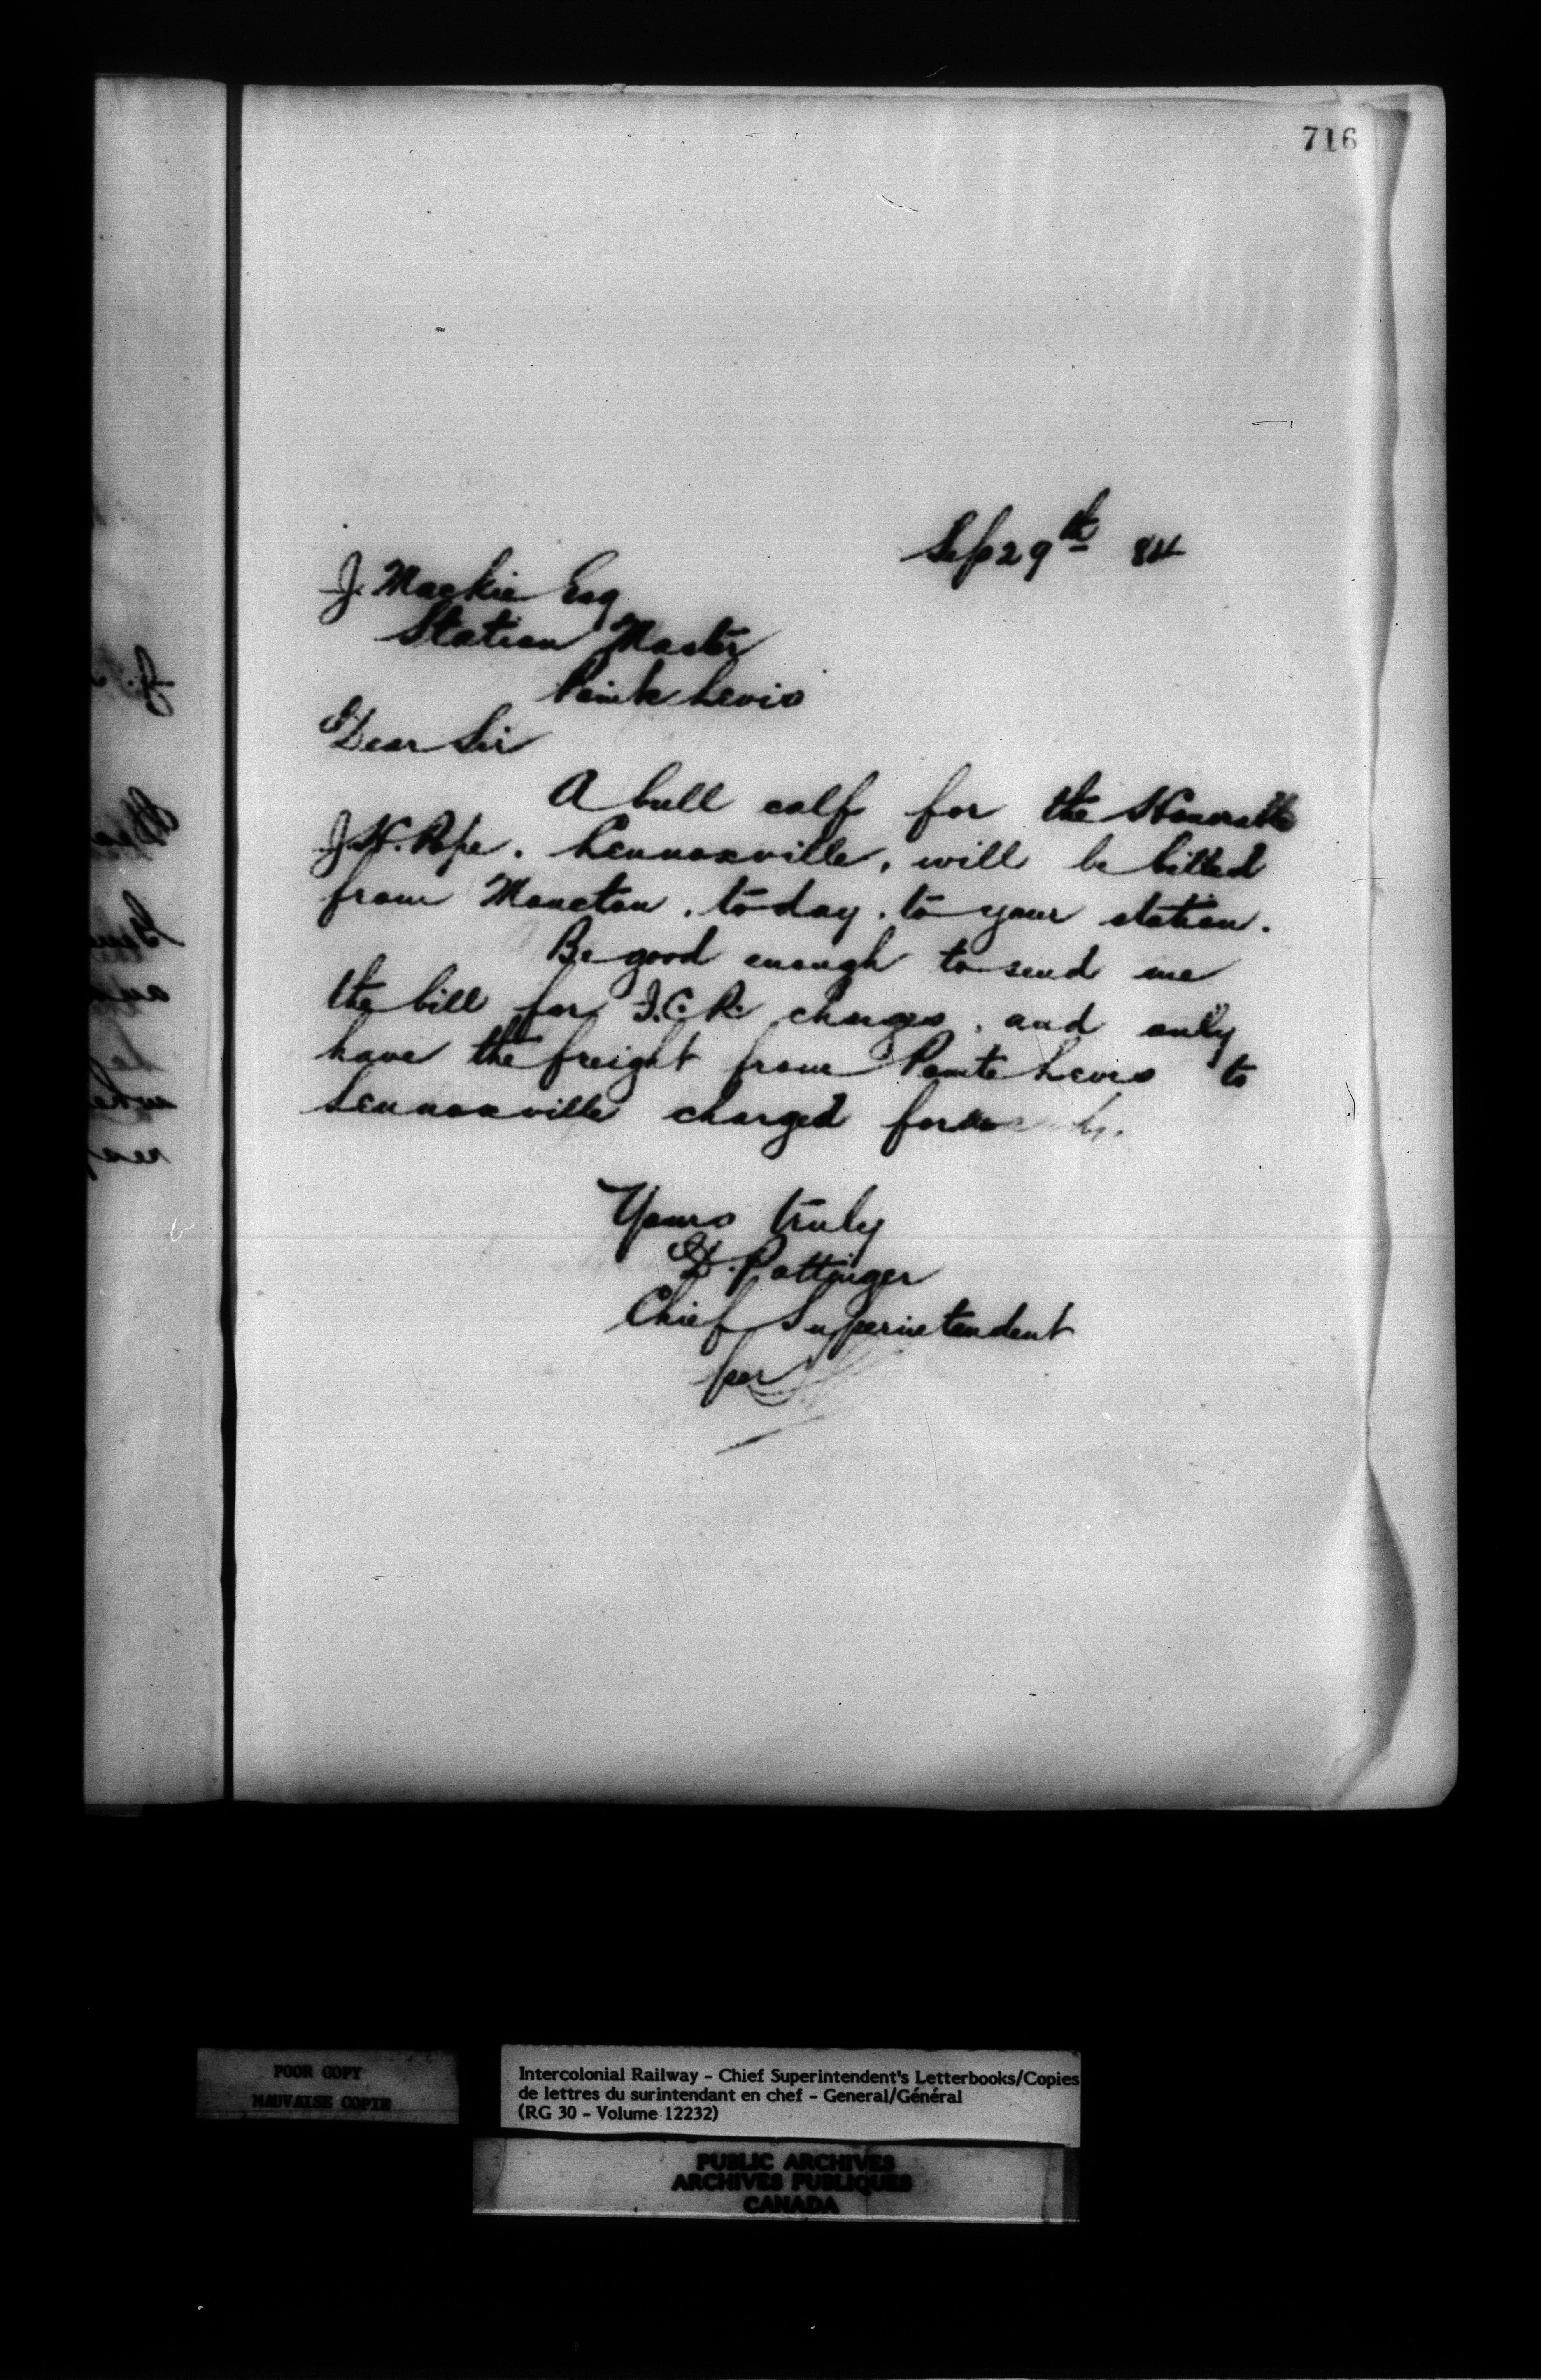 716
Sep 29th 84
J. Mackie Esq
Station Master
Point Levis
Dear Sir
A bull calf for the Honorable
J.H. Pope. Lennoxville, will be billed
from Moncton, to-day, to your station.
Be good enough to send me
the bill for I.C.R. charges, and only
have the freight from Pointe Levis to
Lennoxville charged forward.
Yours truly
D. Pottinger
Chief Superintendent
per
POOR COPY
MAUVAISE COPIE
Intercolonial Railway - Chief Superintendent's Letterbooks/Copies
de lettres du surintendant en chef - General/Général
(RG 30 - Volume 12232)
PUBLIC ARCHIVES
ARCHIVES PUBLIQUES
CANADA